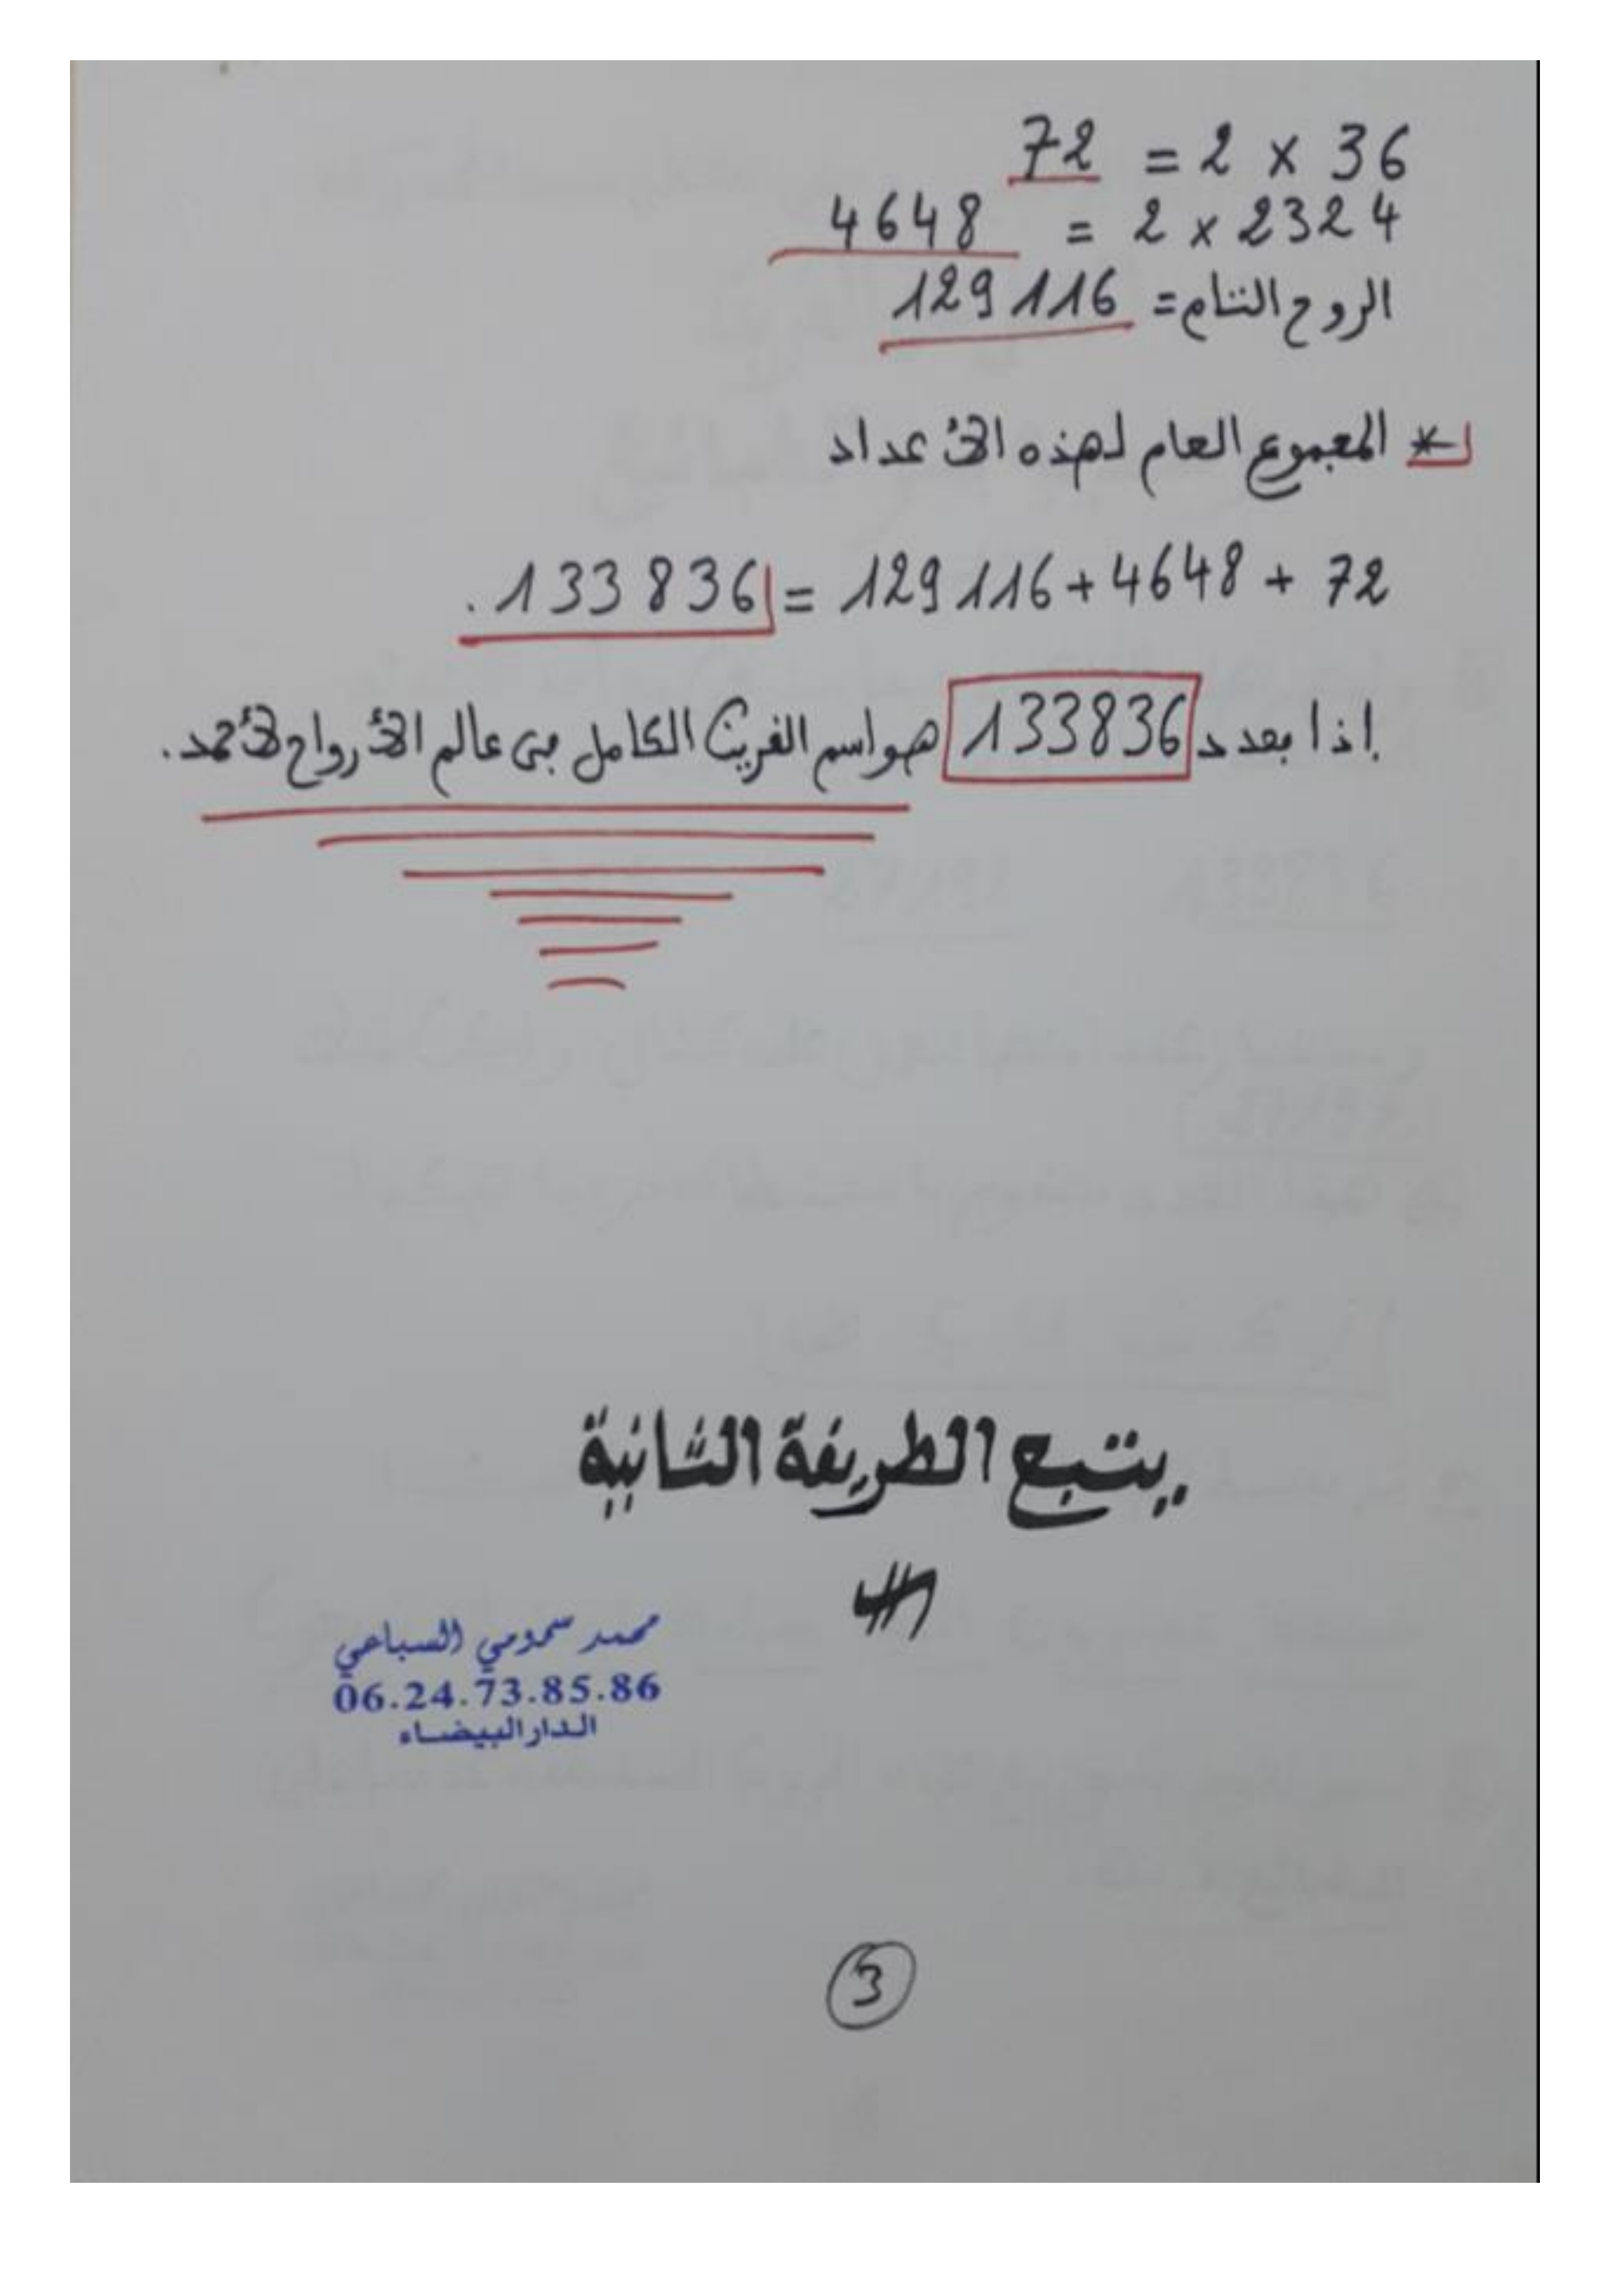 72 = 2 × 36
4648 = 2 × 2324
الروح التام = 129116
* المجموع العام لهذه الأعداد
72 + 4648 + 129116 = 133836.
إذا بعدد 133836 هو اسم القرين الكامل في عالم الأرواح لأحمد.
يتبع الطريقة الثانية
محمد سمومي السباعي
06.24.73.85.86
الدار البيضاء
3